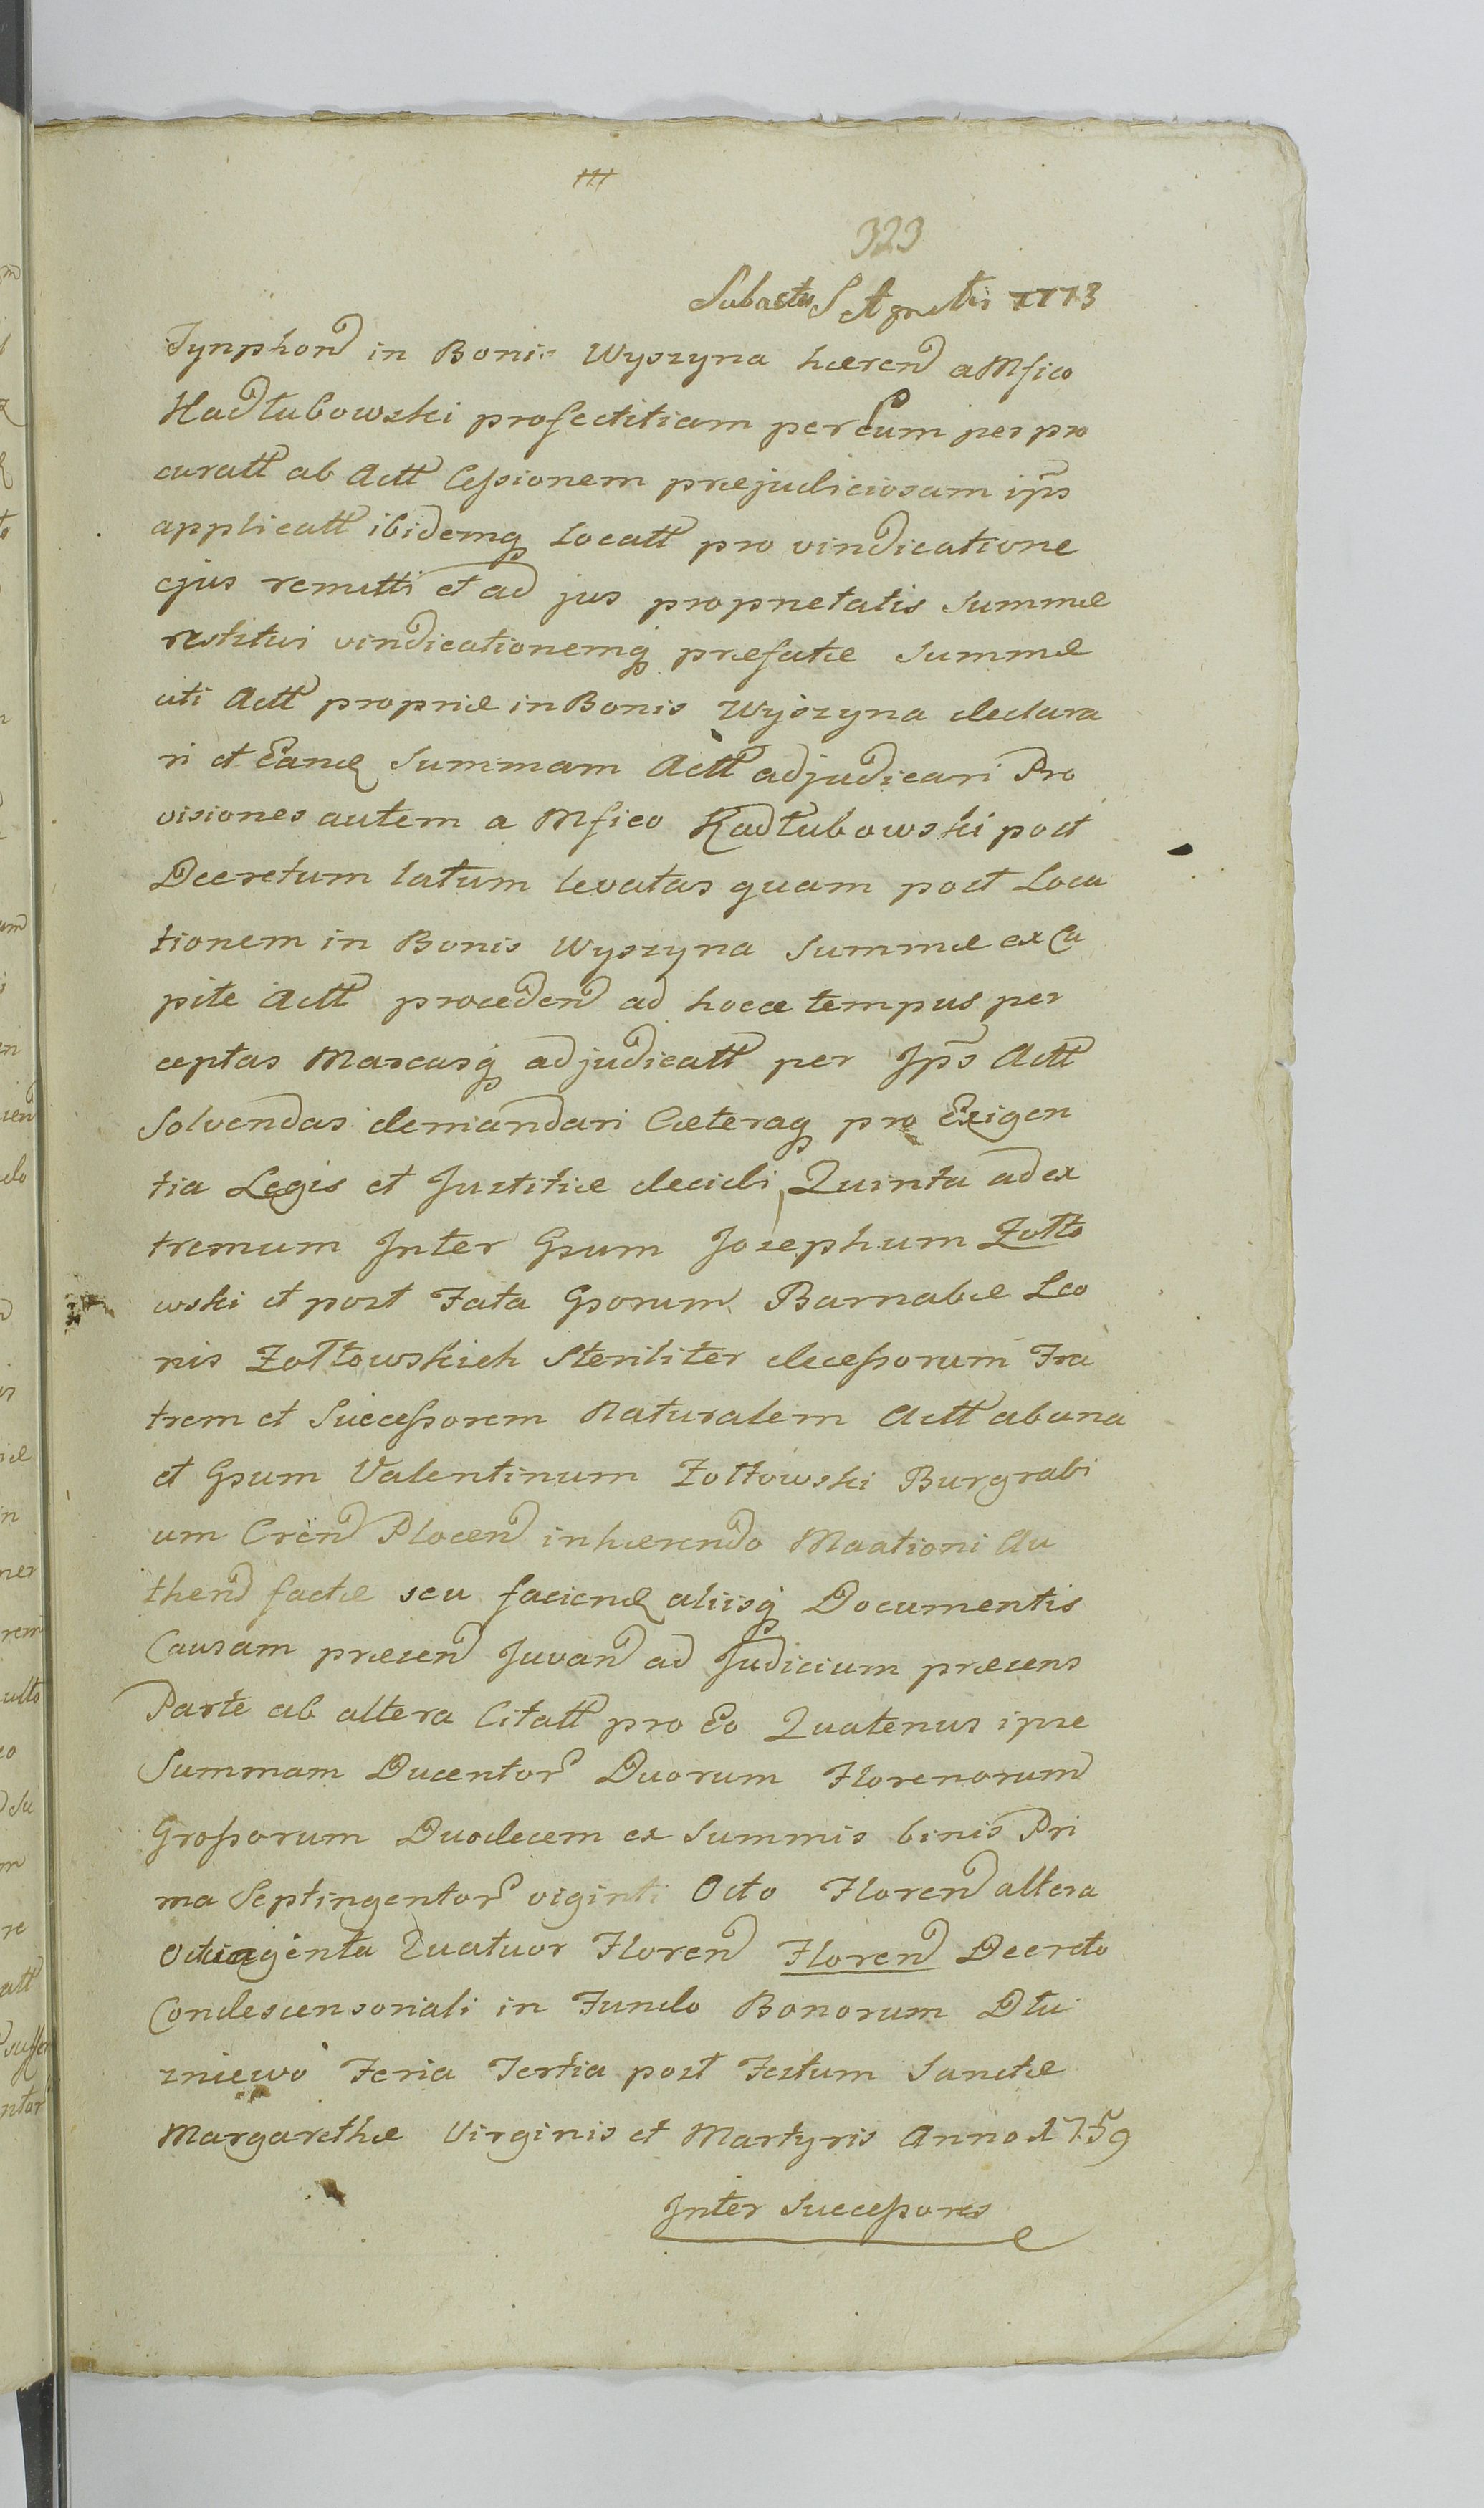 323
Subactus S
1773
Tynphon in Bonis Wyszyna hæren a Mfico
Kadłubowski profectitiam per Eum per pro
curatt ab Actt Cessionem præjudiciosam ips
applicatt ibidemq locatt pro vindicatione
ejus remitti et ad jus proprietatis Summæ
restitui vindicationemq præfatæ Summæ
uti Actt propriæ in Bonis Wyszyna declara
ri et Eand Summam Actt adjudicari Pro
visiones autem a Mfico Kadłubowski post
Decretum latum levatas quam post Loca
tionem in Bonis Wyszyna Summæ ex Ca
pite Actt proceden ad hocce tempus per
ceptas Marcasq adjudicatt per Ips Actt
Solvendas demandari Cæteraq pro Exigen
tia Legis et Justitiæ decidi, Quinta ad ex
tremum Inter Gsum Josephum Zołto
wski et post Fata Gsorum Barnabæ Leo
nis Zołtowskich Steriliter decessorum Fra
trem et Successorem Naturalem Actt ab una
et Gsum Valentinum Zołtowski Burgrabi
um Cren Plocen inhærendo Maationi Au
then factæ seu faciend aliisq Documentis
Causam præsen Juvan ad Judicium præsens
Parte ab altera Citatt pro Eo Quatenus ipse
Summam Ducentor Duorum Florenorum
Grossorum Duodecem ex Summis binis Pri
ma Septingentor viginti Octo Floren altera
Octuaginta Quatuor Floren Floren Decreto
Condescensoriali in Fundo Bonorum Dłu
zniewo Feria Tertia post Festum Sanctæ
Margarethæ Virginis et Martyris Anno 1759
Inter Successores